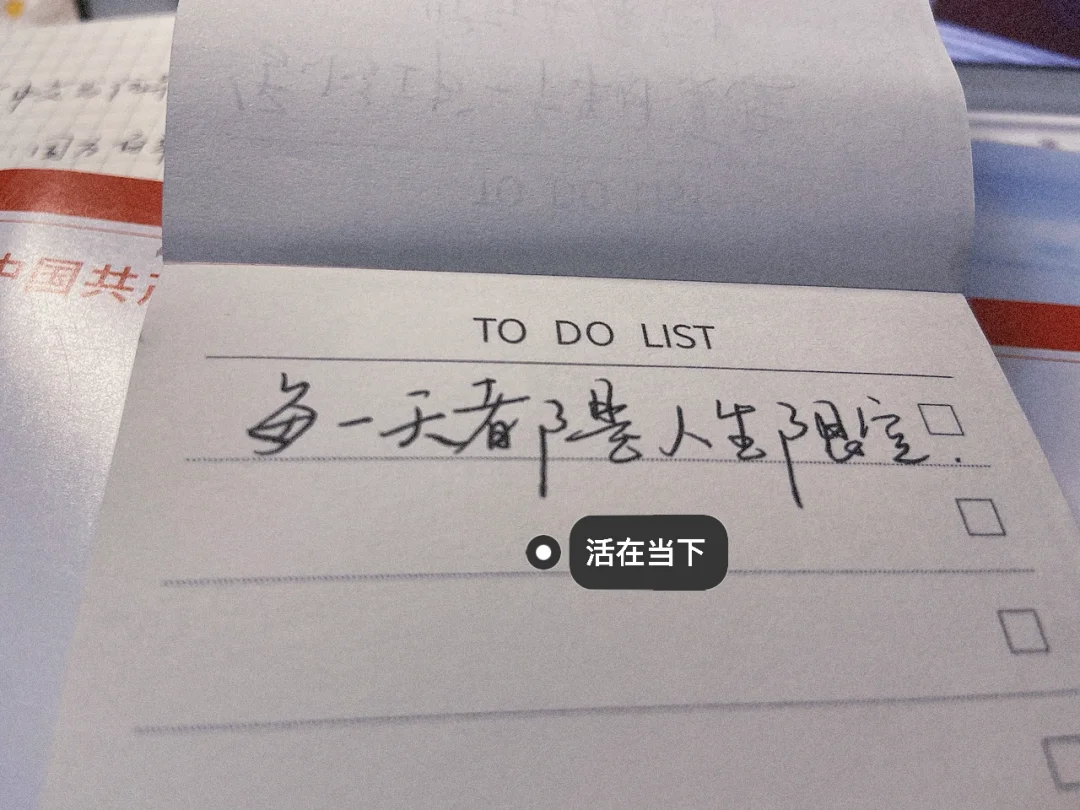 中国共产
TO DO LIST
每一天都是人生限定.
活在当下